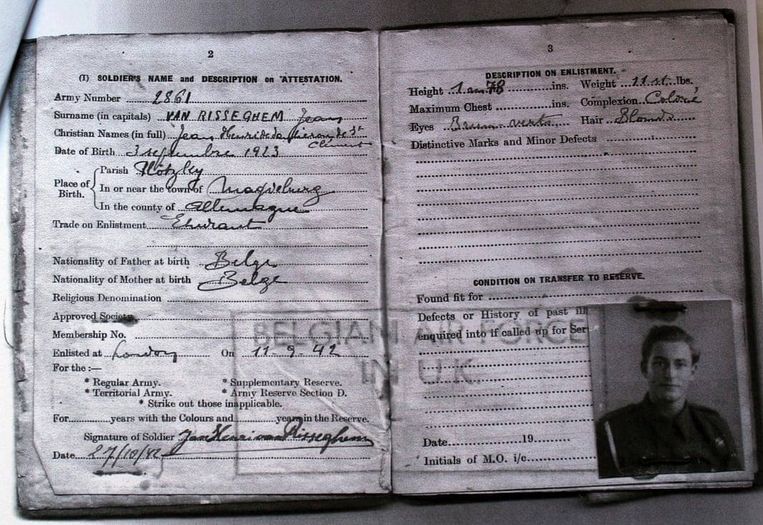 2
(I) SOLDIER'S NAME and DESCRIPTION on ATTESTATION.
Army Number 2861
Surname (in capitals) VAN RISSEGHEM Jean
Christian Names (in full) Jean Henri
Date of Birth 3 septembre 1923
Place of Birth.
Parish
In or near the town of Magdeburg
In the county of Allemagne
Trade on Enlistment Etudiant
Nationality of Father at birth Belge
Nationality of Mother at birth Belge
Religious Denomination
Approved Society
Membership No.
Enlisted at London On 11-9-42
For the :—
* Regular Army. * Supplementary Reserve.
* Territorial Army. * Army Reserve Section D.
* Strike out those inapplicable.
For years with the Colours and years in the Reserve.
Signature of Soldier Jan Henri van Risseghem
Date 27/10/42
BELGIAN AIR FORCE
IN U.K.
3
DESCRIPTION ON ENLISTMENT.
Height 1 m 78 ins. Weight 11 st lbs.
Maximum Chest ins. Complexion Coloré
Eyes Brun verts Hair Blonds
Distinctive Marks and Minor Defects
CONDITION ON TRANSFER TO RESERVE.
Found fit for
Defects or History of past ill
enquired into if called up for Ser
Date 19
Initials of M.O. i/c